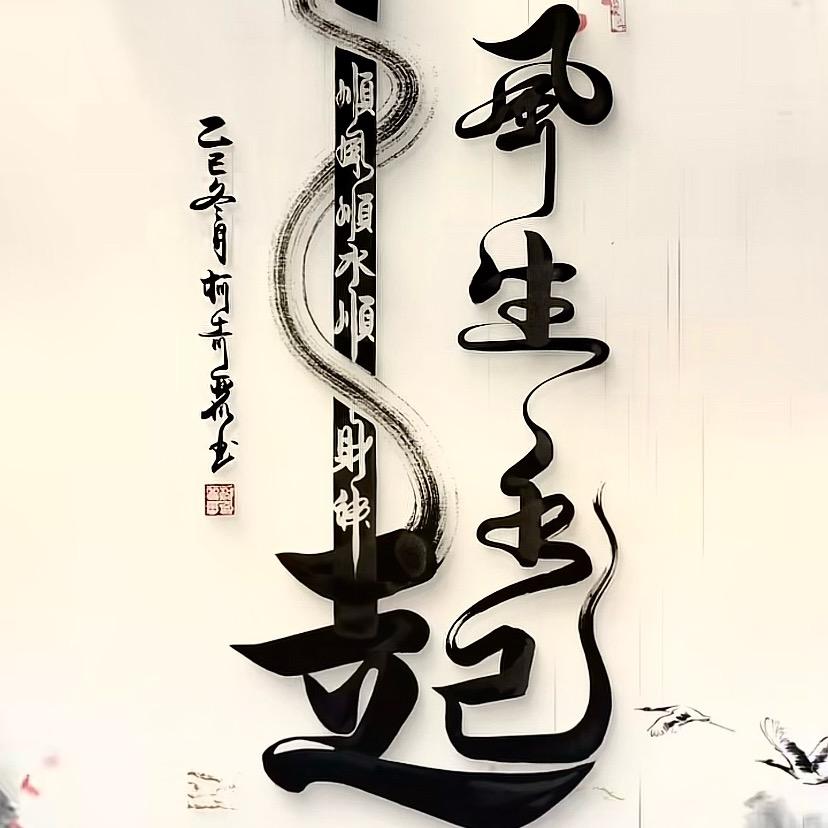 風生水起
順風順水順財神
乙巳冬月柯书